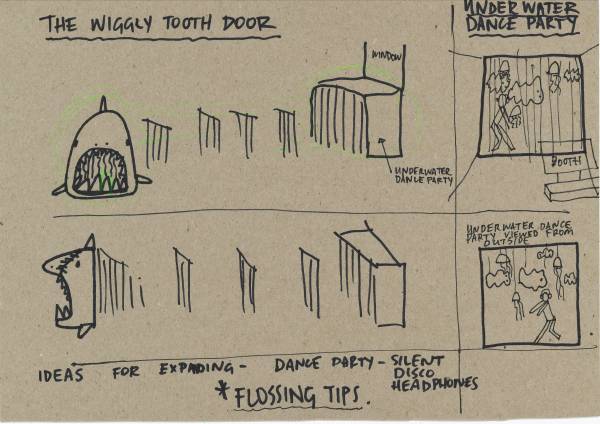 THE WIGGLY TOOTH DOOR
WINDOW
UNDERWATER
DANCE PARTY
UNDERWATER
DANCE PARTY
BOOTH
UNDERWATER DANCE
PARTY VIEWED FROM
OUTSIDE
IDEAS FOR EXPADING - DANCE PARTY - SILENT
DISCO
HEADPHONES
* FLOSSING TIPS.